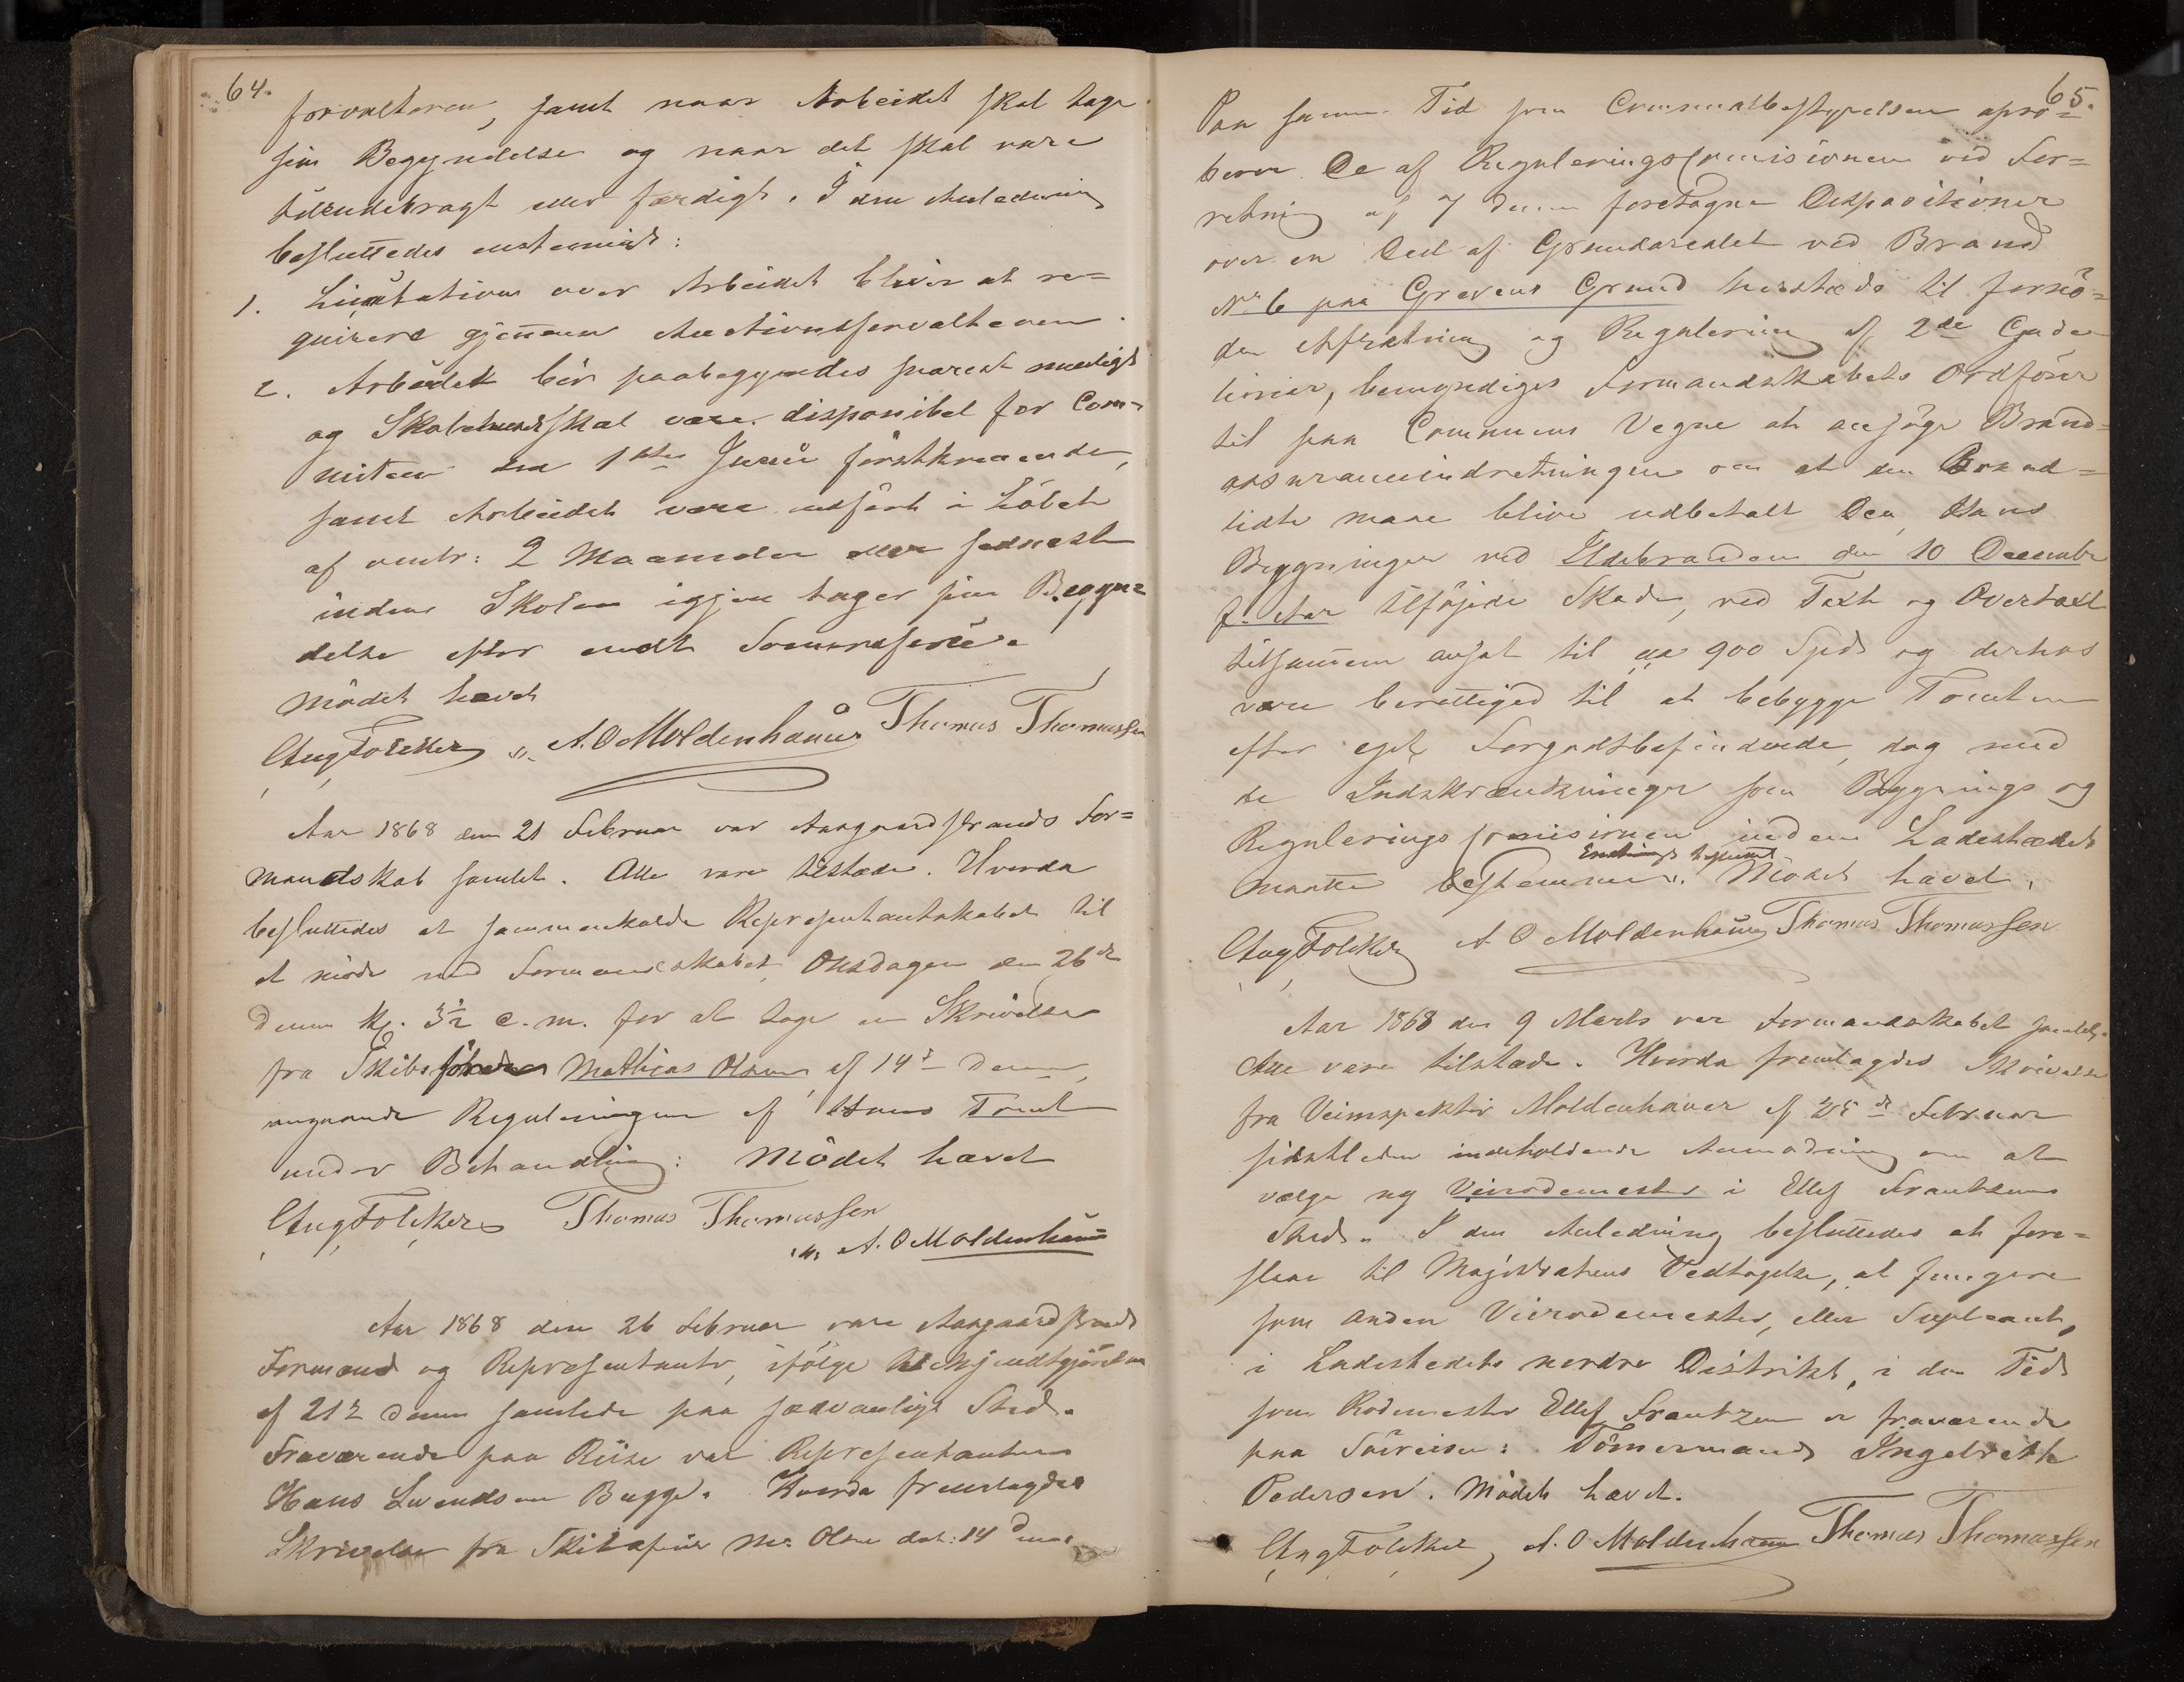 64.
forvalteren, samt naar Arbeidet skal tage
sin Begyndelse og naar det skal være
tilendebragt eller færdigt. I den Anledning
besluttedes enstemmigt:
1. Licitation over Arbeidet bliver at re=
quirere gjennem Auctionsforvalteren.
2. Arbeidet bør paabegyndes snarest muligt
og Skolehuset skal være disponibel for Com-
miteen den 1ste Juni førstkommende,
samt Arbeidet være udført i Løbet
af omtr: 2 Maaneder eller sednest
inden Skolen igjen tager sin Begyn=
delse efter endt Sommerferie.
Mødet hævet
Aug Foleker A. O Moldenhauer Thomas Thomassen
Aar 1868 den 21 Februar var Aasgaardstrands For=
mandskab samlet. Alle vare tilstæde. Hvorda
besluttedes at sammenkalde Repræsentantskabet til
et møde med Formandskabet Onsdagen den 26de
denne Kl. 3½ e.m. for at tage en Skrivelse
fra Skibsfører Mathias Olsen af 14d denne,
angaaende Reguleringen af Hans Tomt
under Behandling: Mødet hævet
Aug Foleker Thomas Thomassen
A. O Moldenhauer
Aar 1868 den 26 Februar vare Aasgaardstrands
Formænd og Repræsentanter, ifølge Bekjendtgjørelse
af 21de denne samlede paa sædvanligt Sted.
Fraværende paa Reise var Repræsentanten
Hans Svendsen Bugge. Hvorda fremlagdes
Skrivelse fra Skibsfører M. Olsen dat: 14 denne
65.
Paa samme Tid som Communalbestyrelsen apro=
berer De af Reguleringscomisionen ved For=
retning af 7 denne foretagne Dispositioner
over en Deel af Grundarealet ved Brand
Nr 6 paa Grevens Grund herstæds til fornø=
den Afretning og Regulering af 2de Gade
linier, bemyndiges Formandskabets Ordfører
til paa Communens Vegne at ansøge Brand=
assuranceindretningen om at den Brand=
lidte maae blive udbetalt Den Hans
Bygninger ved Ildebranden den 10 December
f. Aar tilføjede Skade, ved Taxt og Overtaxt
tilsammen ansat til 900 Spd og derhos
være berettiged til at bebygge Tomten
efter eget Forgodtbefindende, dog med
de Indskrænkninger som Bygnings og
Regulerings comisionen inden Ladestædet
maatte bestemme. Mødet hævet.
Aug Foleker A. O Moldenhauer Thomas Thomassen
Aar 1868 den 9 Marts var Formandskabet samlet,
Alle vare tilstæde. Hvorda fremlagdes Skrivelse
fra Veiinspektør Moldenhauer af 25de Februar
sidstleden indeholdende Anmodning om at
vælge ny Veirodemester i Ellef Frantzens
Sted. I den Anledning besluttedes at fore=
slaae til Magistratens Vedtagelse, at fungere
som anden Veirodemester, eller Supleant,
i Ladestedets nordre Distrikt, i den Tid
som Rodemester Ellef Frantzen er fraværende
paa Søreiser: Tømermand Ingebrett
Pedersen. Mødet hævet.
Aug Foleker, A. O Moldenhauer Thomas Thomassen